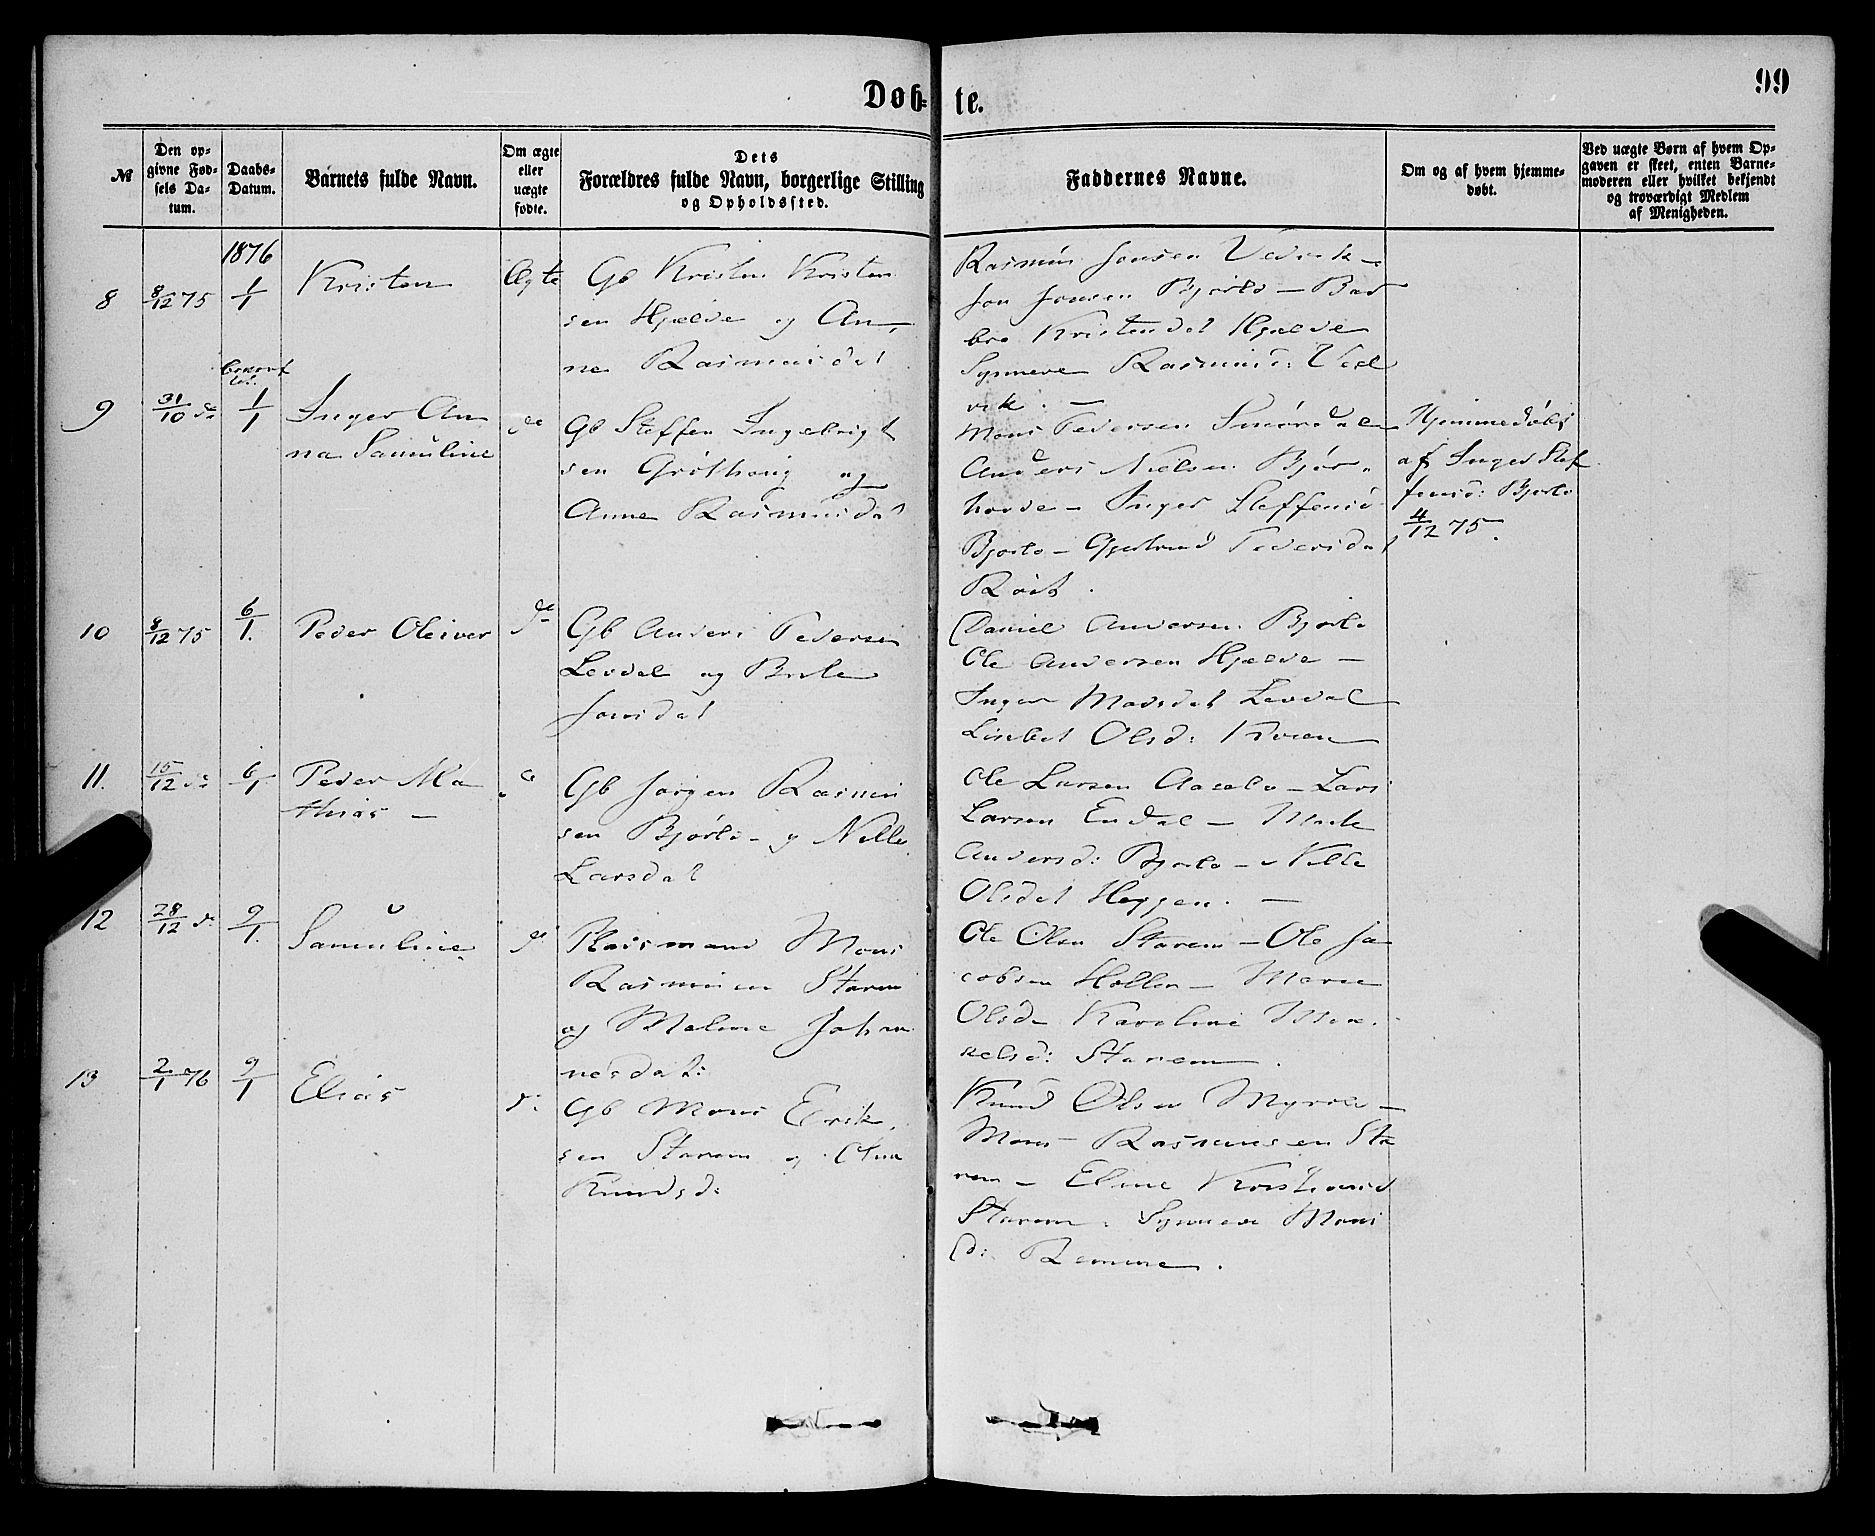 Døb-
te.
99
№
Den op-
givne Fød-
sels Da-
tum.
Daabs-
Datum.
Barnets fulde Navn.
Om ægte
eller
uægte
fødte.
Dets
Forældres fulde Navn, borgerlige Stilling
og Opholdssted.
Faddernes Navne.
Om og af hvem hjemme-
døbt.
Ved uægte Børn af hvem Op-
gaven er skeet, enten Barne-
moderen eller hvilket bekjendt
og troværdigt Medlem
af Menigheden.
1876
8
8/12 75
1/1
Kristen
Ægte
Gb Kristen Kristen
sen Hjelde og An-
ne Rasmusdat
Rasmus Jonsen Vedvik -
Jon Jonsen Bjørlo - Bar
bro Kristendat Hjelde
Synneve Rasmusd: Ved
vik. -
9
31/10 do
1/1
Inger An
na Samuline
do
Gb Steffen Ingebrigt
sen Grøthaug og
Anne Rasmusdat
Mons Pedersen Smørdal
Anders Nielsen Bjør-
hovde - Inger Steffensd
Bjørlo - Gjertrud Pedersdat
Hjemmedøbt
af Inger Stef
fensd: Bjørlo
4/12 75.
10
8/12 75
6/1.
Peder Oleiver
do
Gb Anders Pedersen
Levdal og Brite
Jonsdat
Daniel Andersen Bjørlo
Ole Andersen Hjelde -
Inger Madsdat Levdal
Lisbet Olsd:
11.
15/12 do
6/1
Peder Ma
thias -
do
Gb Jørgen Rasmus
sen Bjørlo - og Nille
Larsdat
Ole Larsen Aasebø - Lars
Larsen Endal -
Andersd: Bjørlo - Nille
Olsdat Heggen. -
12
28/12 do
9/1.
Samuline
do
Pladsmand Mons
Rasmusen Starem
og Malene Johan
nesdat:
Ole Olsen Starem - Ole Ja
cobsen Hollen - Marie
Olsd- Karoline Mik
kelsd: Starem.
13
2/1 76
9/1
Elias
do
Gb Mons Erik
sen Starem og Olina
Knudsd:
Knud Olsen Myrold -
Mons Rasmusen Sta
rem - Eline Kristiansd
Starem. Synneve Mons
d: Remme.